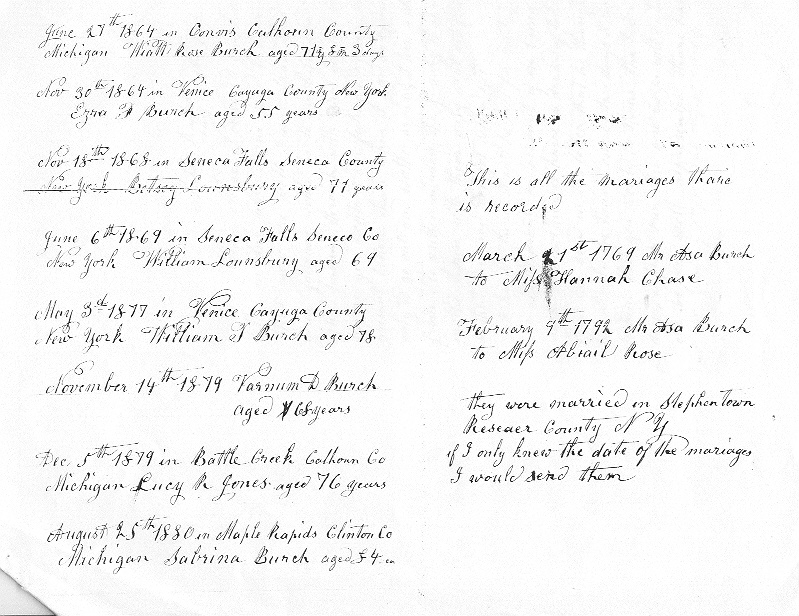 June 27th 1864 in Convis Calhoun County
Michigan Wiatt Rose Burch aged 71y 3 days
Nov 30th 1864 in Venice Cayuga County New York
Ezra Burch aged 55 years
Nov 18th 1868 in Seneca Falls Seneca County
New York Betsey Lownsbury aged 77 years
June 6th 1869 in Seneca Falls Seneco Co
New York William Lounsbury aged 69
May 3d 1877 in Venice Cayuga County
New York William T Burch aged 78
November 14th 1879 Varnum D Burch
aged 68 years
Dec 5th 1879 in Battle Creek Calhoun Co
Michigan Lucy R Jones aged 76 years
August 25th 1880 in Maple Rapids Clinton Co
Michigan Sabrina Burch aged
This is all the mariages thair
is recorded
March 21st 1769 Mr Asa Burch
to Miss Hannah Chase
February 9th 1792 Mr Asa Burch
to Miss Abiail Rose
they were married in Stephentown
Reseaer County N Y
if I only knew the date of the mariages
I would send them